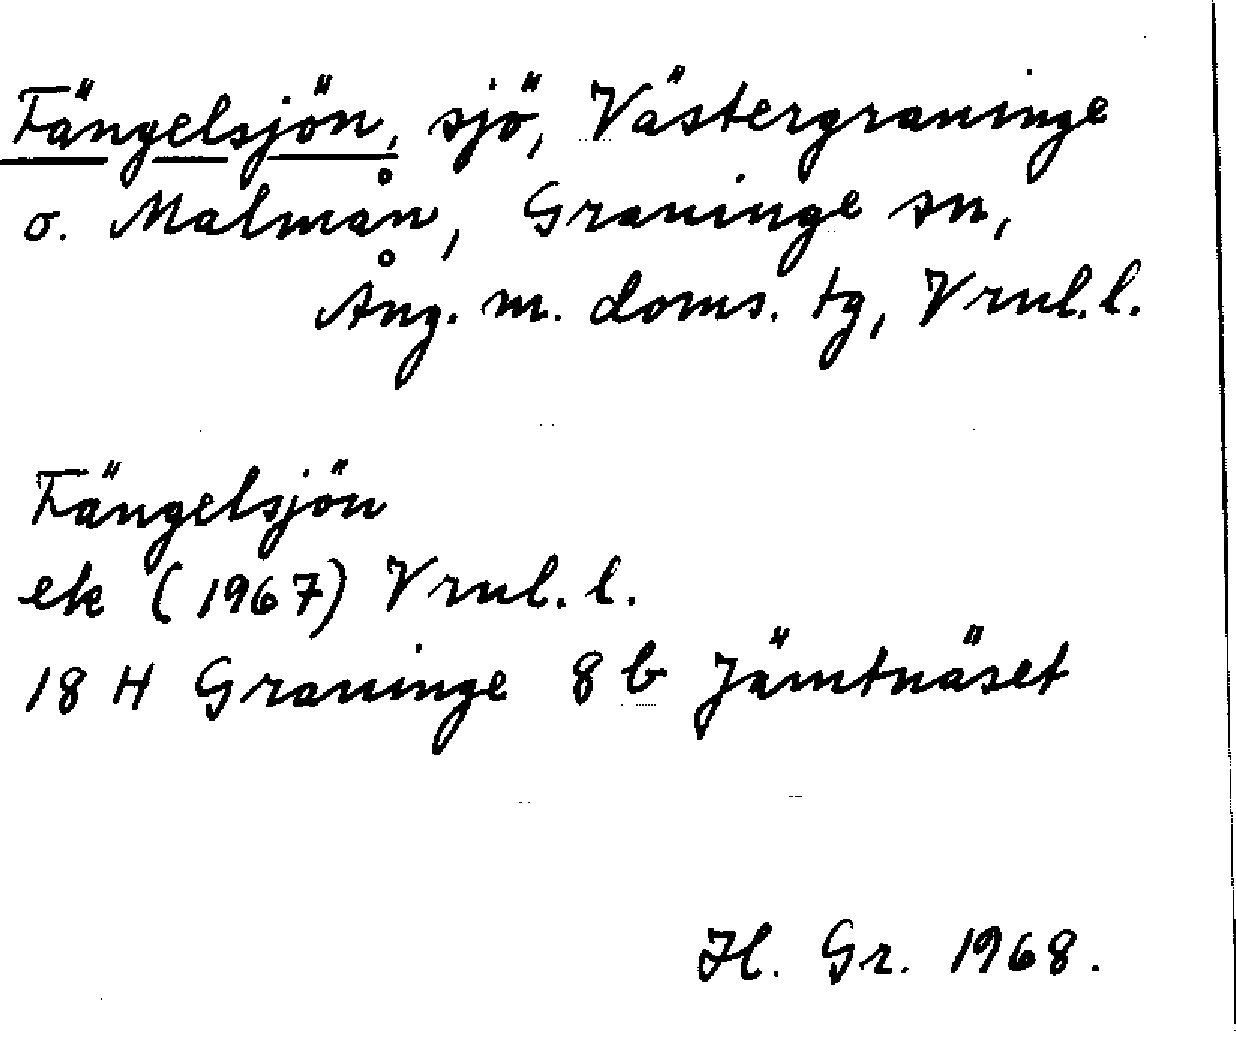 Fängelsjön, sjö, Västergraninge
o. Malmån, Graninge sn,
Ång. m. doms. tg, Vrnl. l.
Fängelsjön
ek (1967) Vrnl. l.
18 H Graninge 8 b Jämtnäset
H. Gr. 1968.